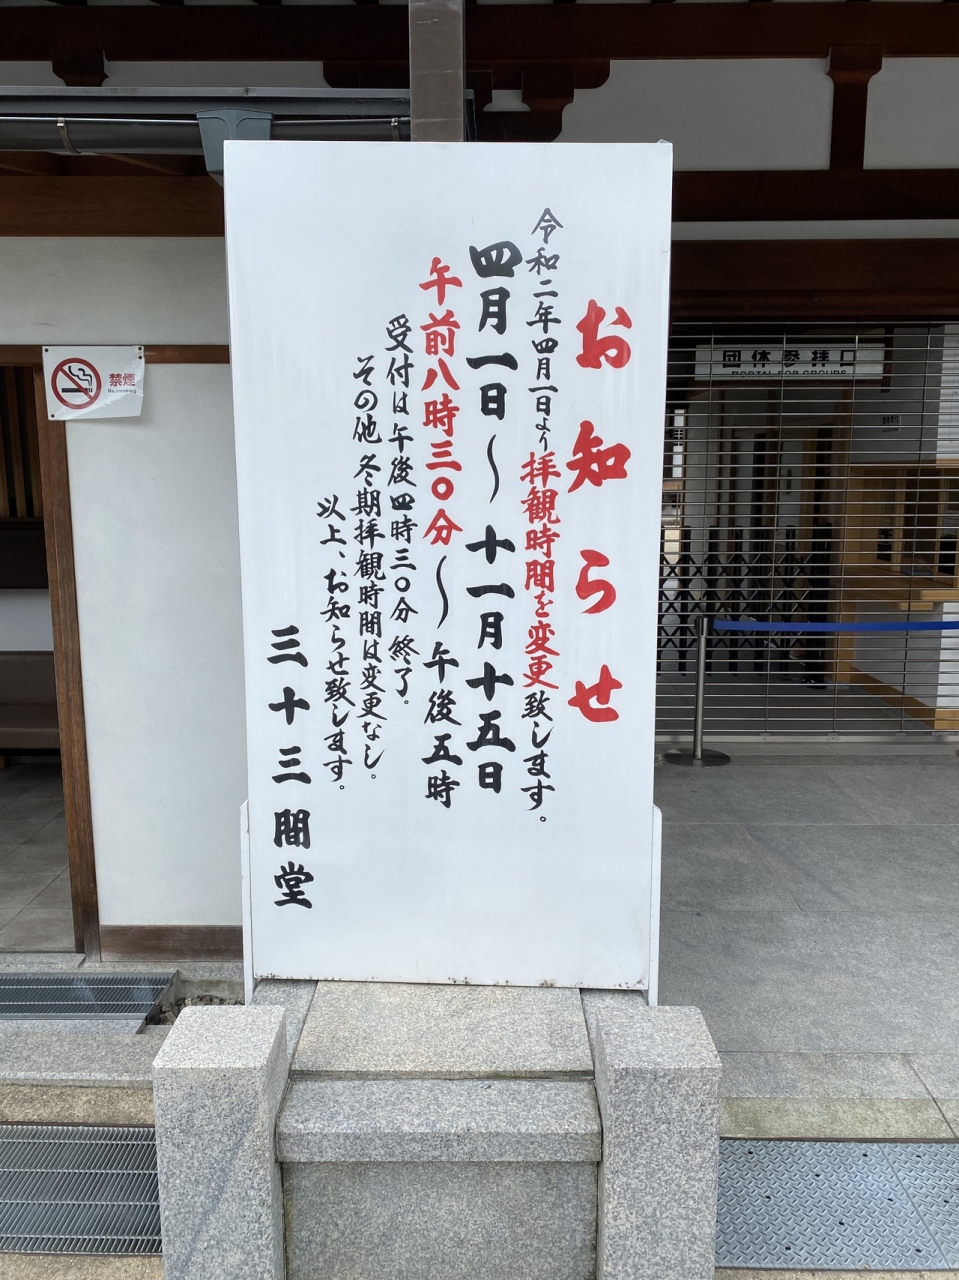 お知らせ
令和二年四月一日より拝観時間を変更致します。
四月一日～十一月十五日
午前八時三〇分～午後五時
受付は午後四時三〇分終了。
その他 冬期拝観時間は変更なし。
以上、お知らせ致します。
三十三間堂
禁煙
No smoking
団体参拝口
PORTAL FOR GROUPS